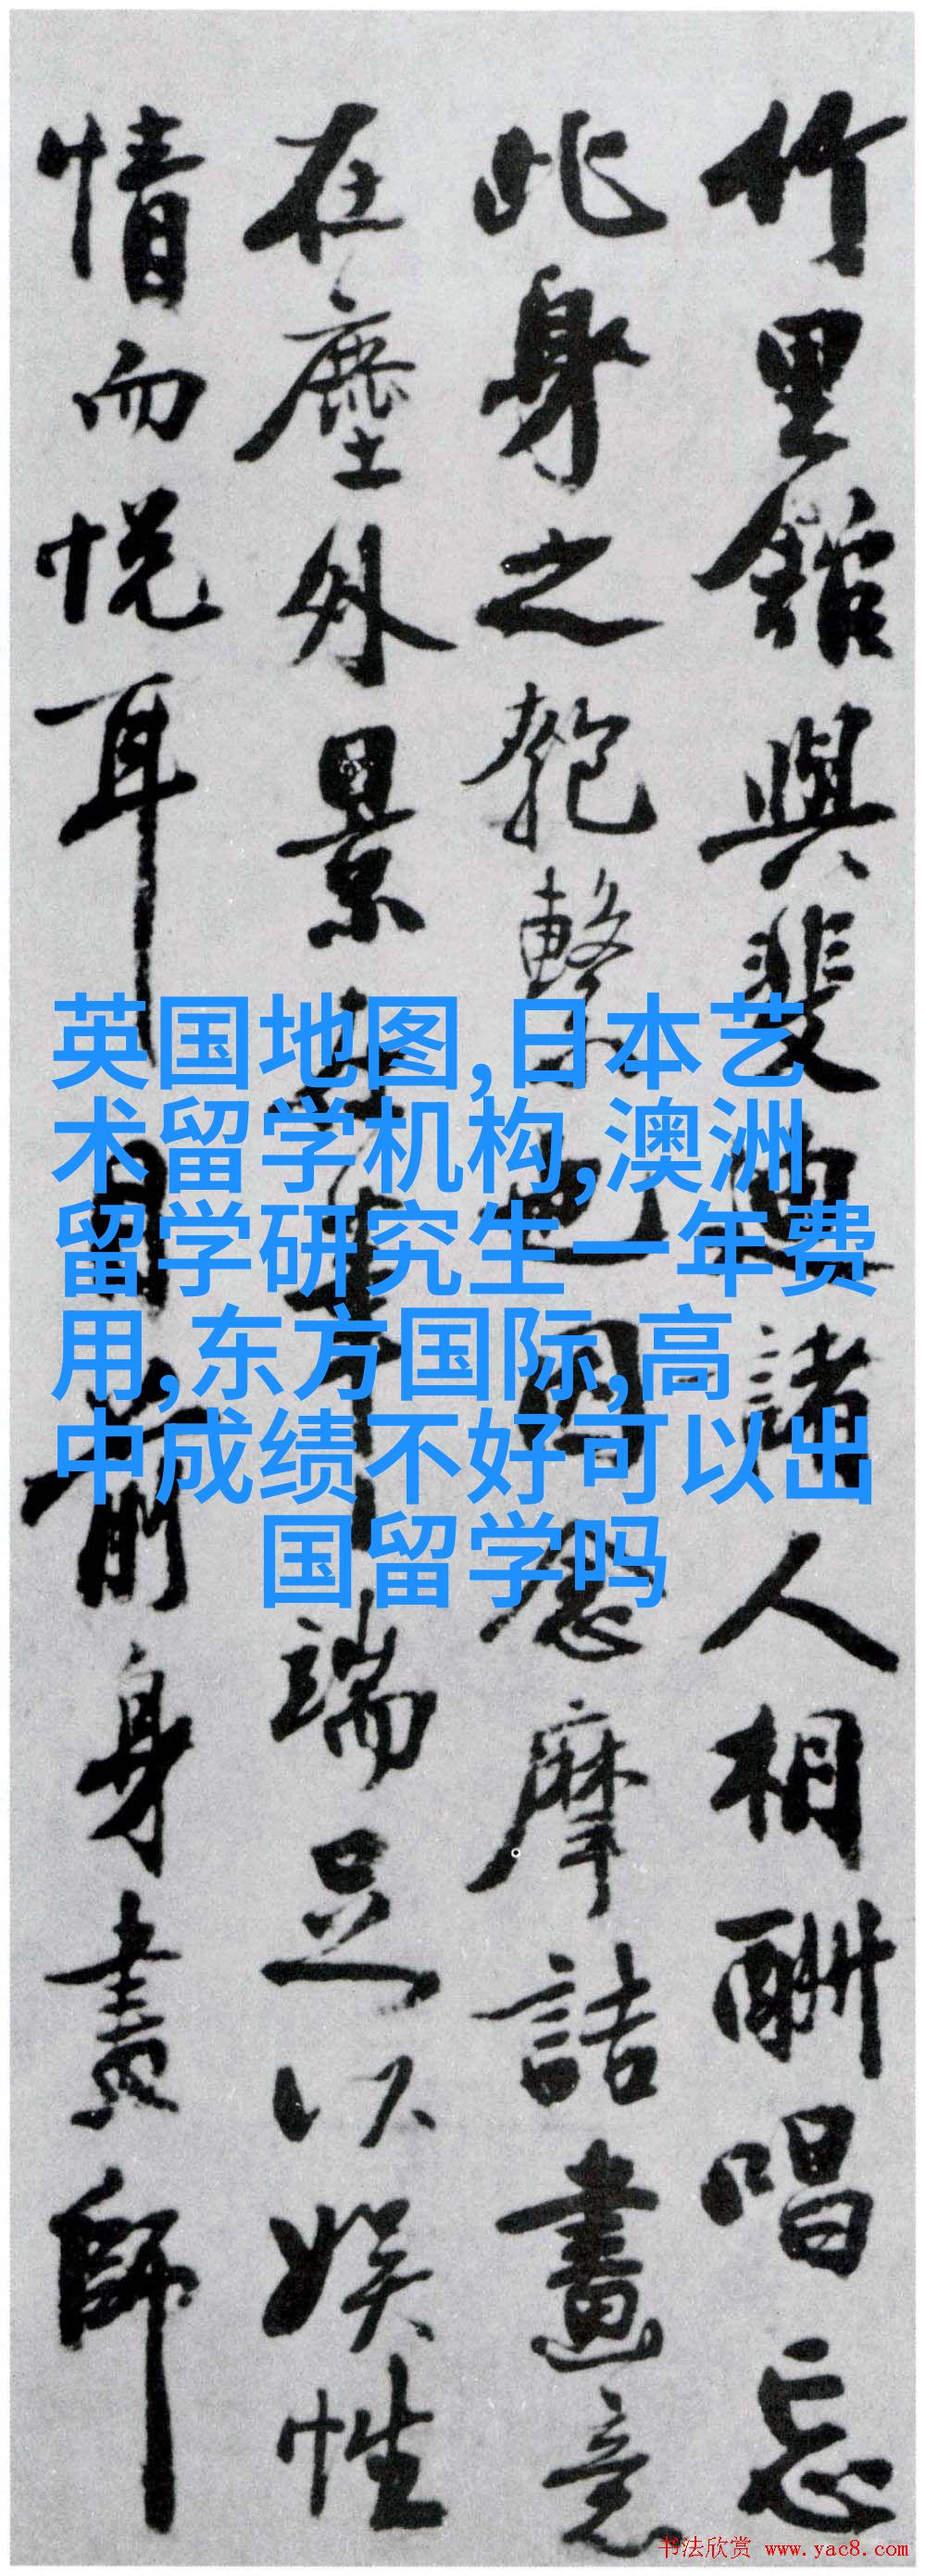 竹里館與裴迪諸人相酬唱忘
此身之匏繫也因念摩詰畫意
在塵外景在筆端足以娛性
情而悦耳目前身畫師
英国地图,日本艺
术留学机构,澳洲
留学研究生一年费
用,东方国际,高
中成绩不好可以出
国留学吗
书法欣赏 www.yac8.com